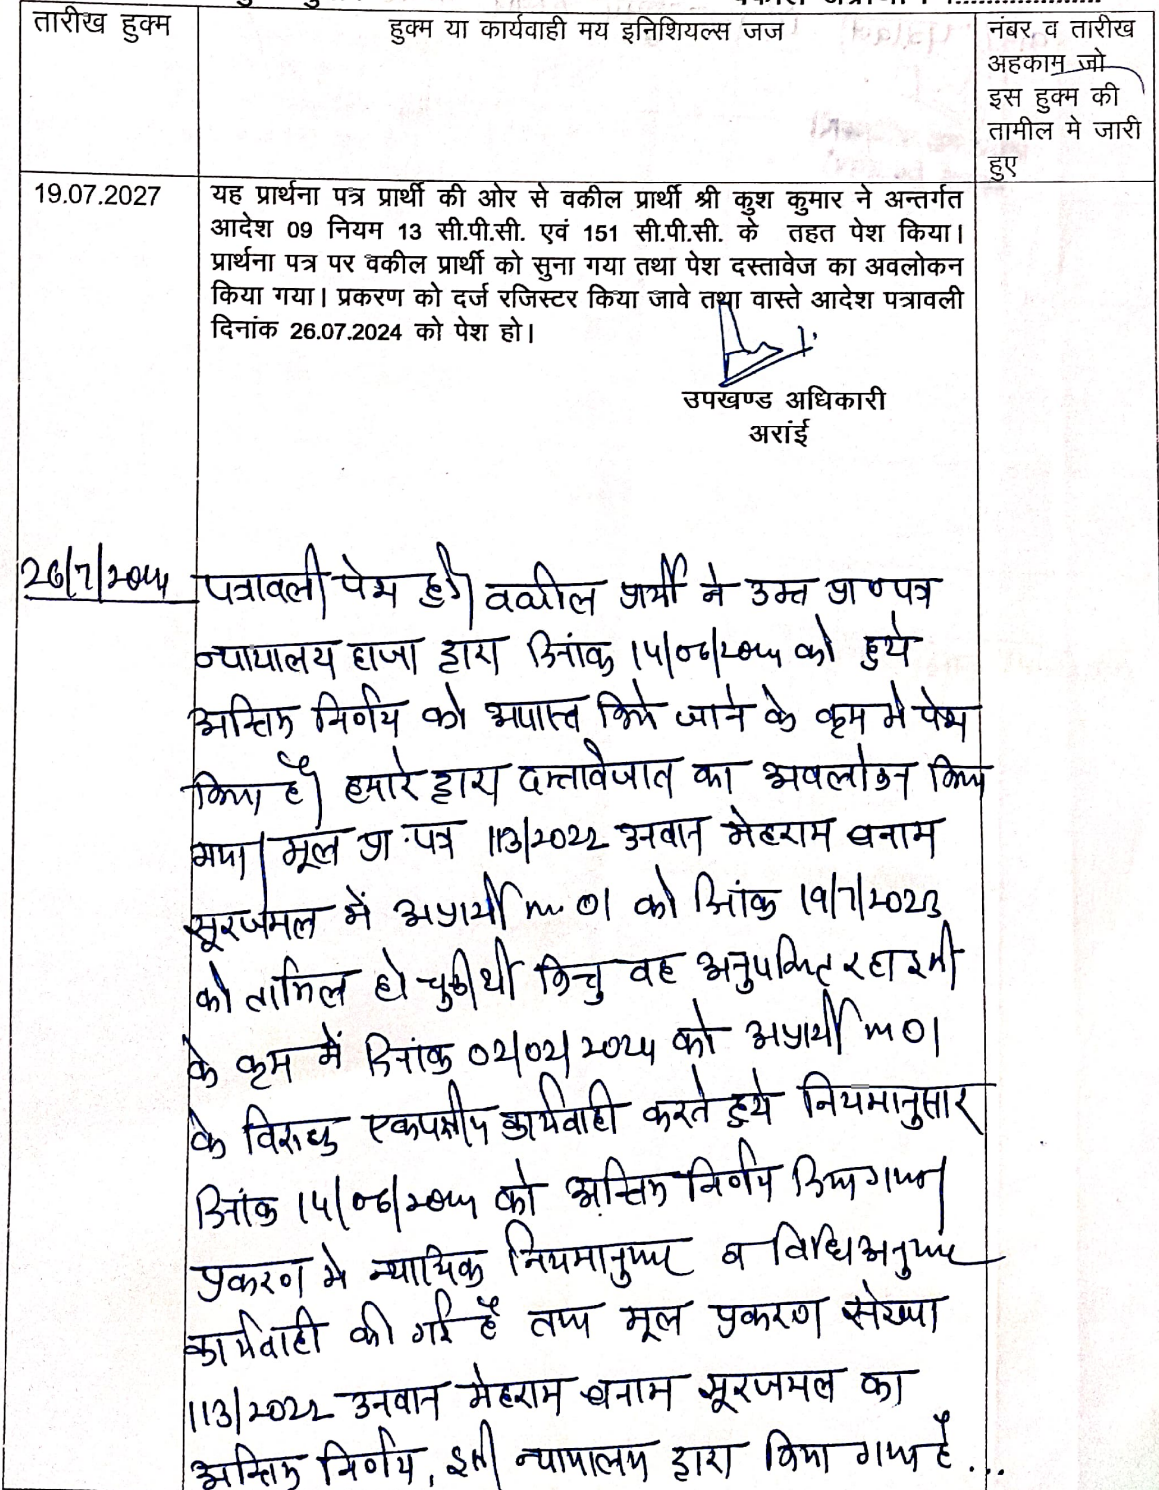 तारीख हुक्म
हुक्म या कार्यवाही मय इनिशियल्स जज
नंबर व तारीख
अहकाम जो
इस हुक्म की
तामील मे जारी
हुए
19.07.2027
यह प्रार्थना पत्र प्रार्थी की ओर से वकील प्रार्थी श्री कुश कुमार ने अन्तर्गत
आदेश 09 नियम 13 सी.पी.सी. एवं 151 सी.पी.सी. के तहत पेश किया।
प्रार्थना पत्र पर वकील प्रार्थी को सुना गया तथा पेश दस्तावेज का अवलोकन
किया गया। प्रकरण को दर्ज रजिस्टर किया जावे तथा वास्ते आदेश पत्रावली
दिनांक 26.07.2024 को पेश हो।
उपखण्ड अधिकारी
अरांई
26/7/2024 पत्रावली पेश हुई। वकील प्रार्थी ने उक्त प्रा० पत्र
न्यायालय हाजा द्वारा दिनांक 14/06/2024 को हुये
अन्तिम निर्णय को अपास्त किये जाने के क्रम मे पेश
किया है। हमारे द्वारा दस्तावेजात का अवलोकन किया
गया। मूल प्रा. पत्र 113/2022 उनवान मेहराम बनाम
सूरजमल में अप्रार्थी 01 को दिनांक 19/7/2023
को तामिल हो चुकी थी किन्तु वह अनुपस्थित रहा इसी
के क्रम में दिनांक 02/02/2024 को अप्रार्थी 01
के विरुद्ध एकपक्षीय कार्यवाही करते हुये नियमानुसार
दिनांक 14/06/2024 को अन्तिम निर्णय दिया गया।
प्रकरण मे न्यायिक नियमानुसार व विधिअनुसार
कार्यवाही की गई है तथा मूल प्रकरण संख्या
113/2022 उनवान मेहराम बनाम सूरजमल का
अन्तिम निर्णय, इसी न्यायालय द्वारा किया गया है...